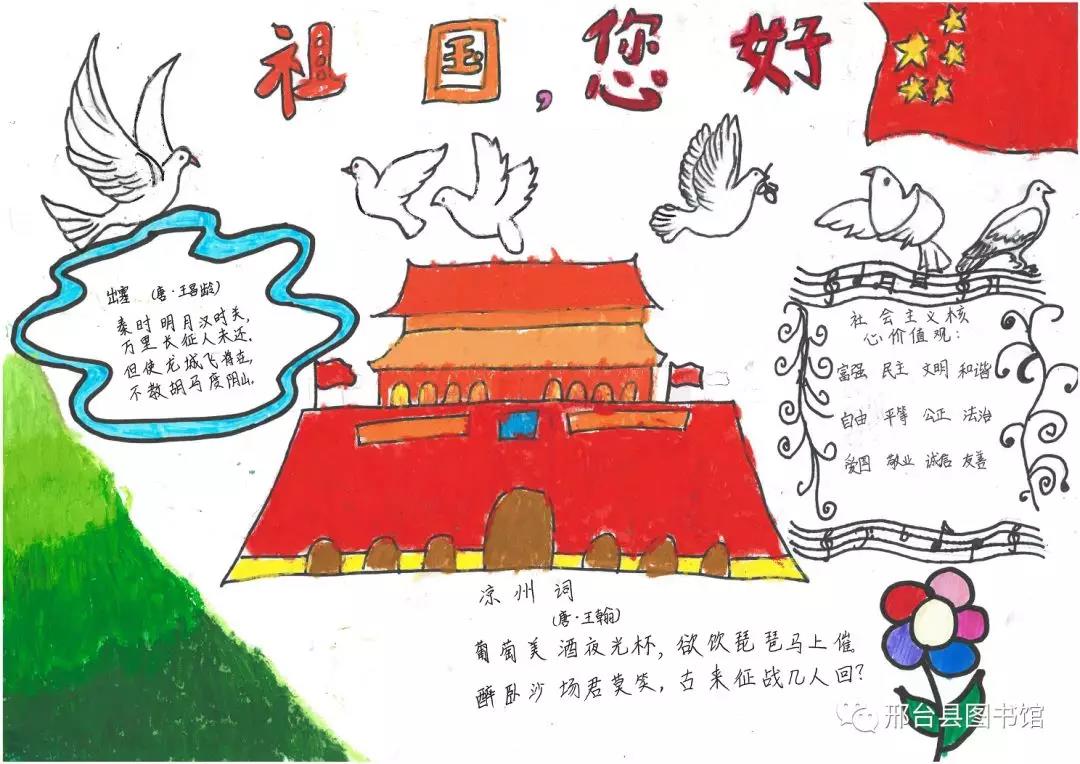 祖国,您好
出塞 (唐·王昌龄)
秦时明月汉时关,
万里长征人未还.
但使龙城飞将在,
不教胡马度阴山.
社会主义核
心价值观:
富强 民主 文明 和谐
自由 平等 公正 法治
爱国 敬业 诚信 友善
凉州词
(唐·王翰)
葡萄美酒夜光杯,欲饮琵琶马上催
醉卧沙场君莫笑,古来征战几人回?
邢台县图书馆